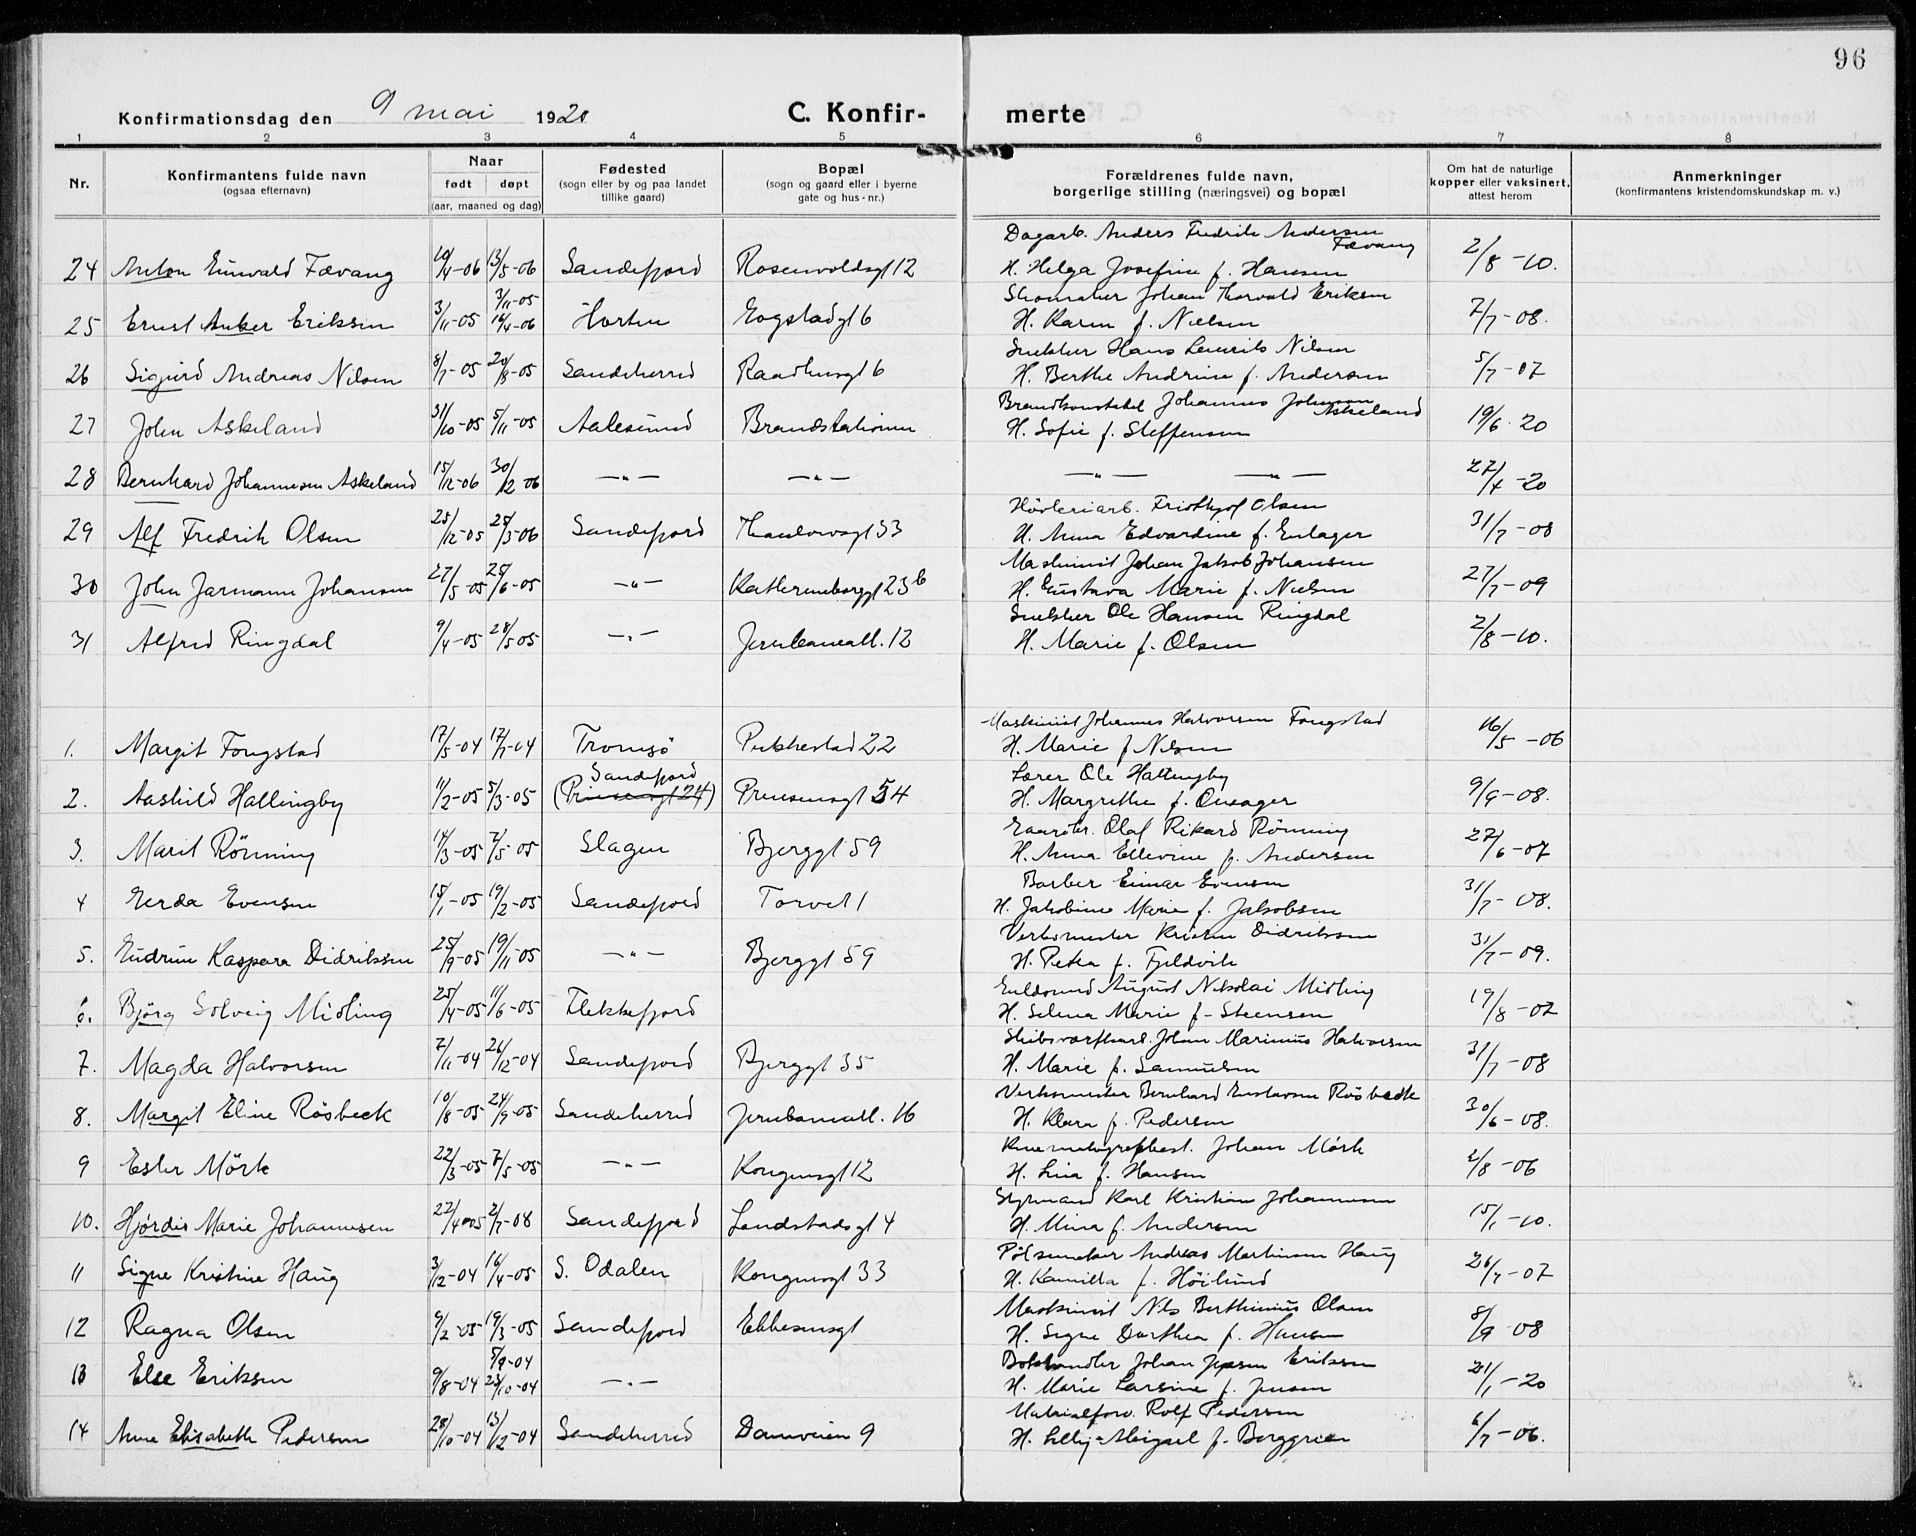 96
Konfirmationsdag den 9 mai 1920 C. Konfir- merte
1 2 3 4 5 6 7 8
Nr. Konfirmantens fulde navn (ogsaa efternavn) Naar født døpt (aar, maaned og dag) Fødested (sogn eller by og paa landet tillike gaard) Bopæl (sogn og gaard eller i byerne gate og hus-nr.) Forældrenes fulde navn, borgerlige stilling (næringsvei) og bopæl Om hat de naturlige kopper eller vaksinert, attest herom Anmerkninger (konfirmantens kristendomskundskap m. v.)
Dagarb. Anders Fredrik Andersen Fævang
24 Anton Fævang 10/4-06 13/5-06 Sandefjord Rosenvoldsgt 12 H. Helga Josefine f. Hansen 2/8-10.
3/11-05 Skomaker Johan Thorvald Eriksen
25 Ernst Anker Eriksen 3/11-05 16/4-06 Horten H. Karen f. Nielsen 7/7-08.
Snekker Hans Laurits Nilsen
26 Sigurd Andreas Nilsen 8/7-05 20/8-05 Sandeherred Raadhusgt 6 H. Berthe Andrine f. Andersen 5/7-07
Brandkonstabel Johannes Johnsen Askeland
27 John Askeland 31/10-05 5/11-05 Aalesund Brandstationen H. Sofie f. Steffensen 19/6 20
28 Bernhard Johannesen Askeland 15/12-06 30/12 06 —"— —"— —"— —"— 27/4-20
Høvleriarb. Fridtjof Olsen
29 Alf Fredrik Olsen 25/12-05 25/3-06 Sandefjord Thaulowsgt 33 H. Anna Edvardine f. Enlager 31/7-08
Maskinist Johan Jakob Johansen
30 John Jarmann Johansen 27/5-05 25/6-05 —"— 23b H. Gustava Marie f. Nielsen 27/7-09
Snekker Ole Hansen Ringdal
31 Alfred Ringdal 9/4-05 28/5 05 —"— Jernbaneall. 12 H. Marie f. Olsen 2/8-10.
Maskinist Johannes Halvorsen Fongstad
1. Margit Fongstad 17/5-04 17/7-04 Tromsø Pukkestad 22 H. Marie f Nilsen 16/5-06
Sandefjord Lærer Ole Hallingby
2. Aashild Hallingby 11/2-05 5/3-05 (Prinsensgt 24) Prinsensgt 54 H. Margrethe f. Onsager 9/9-08.
Olaf Rikard Rönning
3. Marit Rönning 14/3-05 7/5-05 Slagen Bjerggt 59 H. Anna Ellevine f. Andersen 27/6-07
Barber Einar Evensen
4 Gerda Evensen 15/1-05 19/2-05 Sandefjord Torvet 1 H. Jakobine Marie f. Jakobsen 31/7-08.
Verksmester Kristen Didriksen
5. Gudrun Kaspara Didriksen 25/9-05 19/11-05 —"— Bjerggt 59 H. Petra f. Fjeldvik 31/7-09.
Guldsmed August Nikolai Midling
6. Bjørg Solveig Midling 25/4-05 11/6-05 Flekkefjord H. Selma Marie f. Steensen 19/8-07
Johan Marinius Halvorsen
7. Magda Halvorsen 7/11-04 26/12-04 Sandefjord Bjerggt 35 H. Marie f. Samuelsen 31/7-08
Verksmester Bernhard Gustavsen Røsbeck
8. Margit Eline Røsbeck 10/8-05 24/9-05 Sandeherred Jernbaneall. 16 H. Klara f. Pedersen 30/6-08.
Kinematografbest. Johan Mørk
9 Ester Mörk 22/3-05 7/5-05 —"— Kongensgt 12 H. Lina f. Hansen 2/8-06
Styrmand Karl Kristian Johannesen
10. Hjørdis Marie Johannesen 22/4-05 2/7-08 Sandefjord Landstadsgt 4 H. Mina f. Andersen 15/1-10.
Pølsemaker Andreas Martinsen Haug
11 Signe Kristine Haug 3/12-04 16/4-05 S. Odalen Kongensgt 33 H. Kamilla f. Höilund 26/7-07
Maskinist Nils Berthinius Olsen
12 Ragna Olsen 9/2-05 19/3-05 Sandefjord Ebbesensgt H. Signe Dorthea f. Hansen 8/9 08
5/9-04 Bokhandler Johan Eriksen
13 Else Eriksen 9/8-04 23/10-04 —"— H. Marie Larsine f. Jensen 21/1-20
Materialforv. Rolf Pedersen
14 Anne Elisabeth Pedersen 28/10-04 13/12-04 Sandeherred Damveien 9 H. Lilly Abigael f. Berggreen 6/7-06.